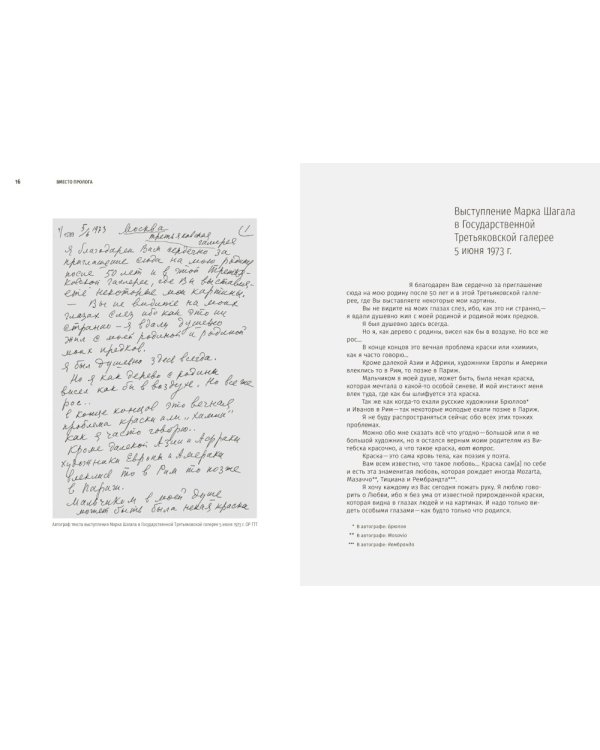 16
ВМЕСТО ПРОЛОГА
5/6 1973 Москва (1
третьяковская
галерея
Я благодарен Вам сердечно за
приглашение сюда на мою родину
после 50 лет и в этой Третья-
ковской галлерее, где Вы выставля-
ете некоторые мои картины.
— Вы не видите на моих
глазах слез ибо как это ни
странно — я вдали душевно
жил с моей родиной и родиной
моих предков.
Я был душевно здесь всегда.
Но я как дерево с родины
висел как бы в воздухе. Но все же
рос..
в конце концов это вечная
проблема краски или "химии"
как я часто говорю...
Кроме далекой Азии и Африки
художники Европы и Америки
влеклись то в Рим то позже
в Париж.
Мальчиком в моей душе
может быть была некая краска
Автограф текста выступления Марка Шагала в Государственной Третьяковской галерее 5 июня 1973 г. ОР ГТГ
Выступление Марка Шагала
в Государственной
Третьяковской галерее
5 июня 1973 г.
Я благодарен Вам сердечно за приглашение
сюда на мою родину после 50 лет и в этой Третьяковской галле-
рее, где Вы выставляете некоторые мои картины.
Вы не видите на моих глазах слез, ибо, как это ни странно,—
я вдали душевно жил с моей родиной и родиной моих предков.
Я был душевно здесь всегда.
Но я, как дерево с родины, висел как бы в воздухе. Но все же
рос...
В конце концов это вечная проблема краски или «химии»,
как я часто говорю...
Кроме далекой Азии и Африки, художники Европы и Америки
влеклись то в Рим, то позже в Париж.
Мальчиком в моей душе, может быть, была некая краска,
которая мечтала о какой-то особой синеве. И мой инстинкт меня
влек туда, где как бы шлифуется эта краска.
Так же как когда-то ехали русские художники Брюллов*
и Иванов в Рим—так некоторые молодые ехали позже в Париж.
Я не буду распространяться сейчас обо всех этих тонких
проблемах.
Можно обо мне сказать всё что угодно—большой или я не
большой художник, но я остался верным моим родителям из Ви-
тебска красочно, а что такое краска, вот вопрос.
Краска—это сама кровь тела, как поэзия у поэта.
Вам всем известно, что такое любовь... Краска сам[а] по себе
и есть эта знаменитая любовь, которая рождает иногда Mozarta,
Мазаччо**, Тициана и Рембрандта***.
Я хочу каждому из Вас сегодня пожать руку. Я люблю гово-
рить о Любви, ибо я без ума от известной прирожденной краски,
которая видна в глазах людей и на картинах. И надо только их ви-
деть особыми глазами—как будто только что родился.
* В автографе: Брюлов
** В автографе: Masavio
*** В автографе: Рембрандо